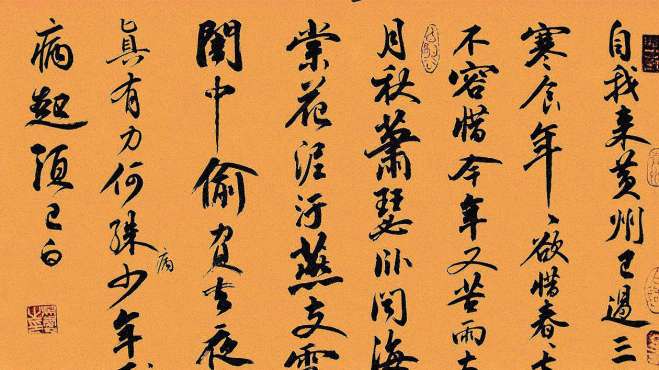 自我来黄州已過三
寒食年〻欲惜春〻去
不容惜今年又苦雨
月秋蕭瑟卧闻海
棠花泥汙燕支雪
闇中偷負去夜
真有力何殊少年
病
病起頭已白